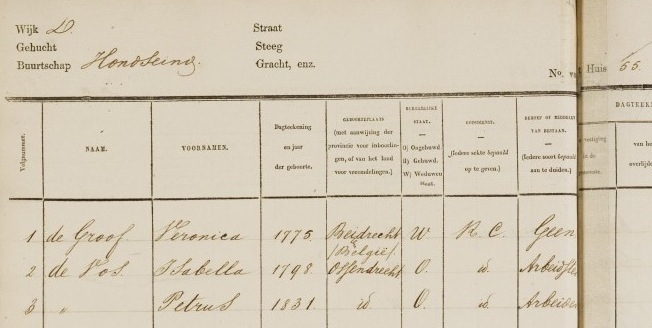 Wijk D. Straat
Gehucht Steeg
Buurtschap Hondseind. Gracht, enz.
No. van Huis 55.
Volgnummer. NAAM. VOORNAMEN. Dagteekening en jaar der geboorte. GEBOORTEPLAATS (met aanwijzing der provincie voor inboorlingen, of van het land voor vreemdelingen.) BURGERLIJKE STAAT. — O) Ongehuwd H) Gehuwd. W) Weduwen Staat. GODSDIENST. — (Iedere sekte bepaald op te geven.) BEROEP OF MIDDELEN VAN BESTAAN. — (Iedere soort bepaald aan te duiden.) DAGTEEK
vestiging in de gemeente. van het overlijden
1 de Groof Veronica 1775. Beidrecht /België/. W R. C. Geen
2 de Vos. Isabella 1798. Ossendrecht O. id.
3 " Petrus 1831. id. O. id.